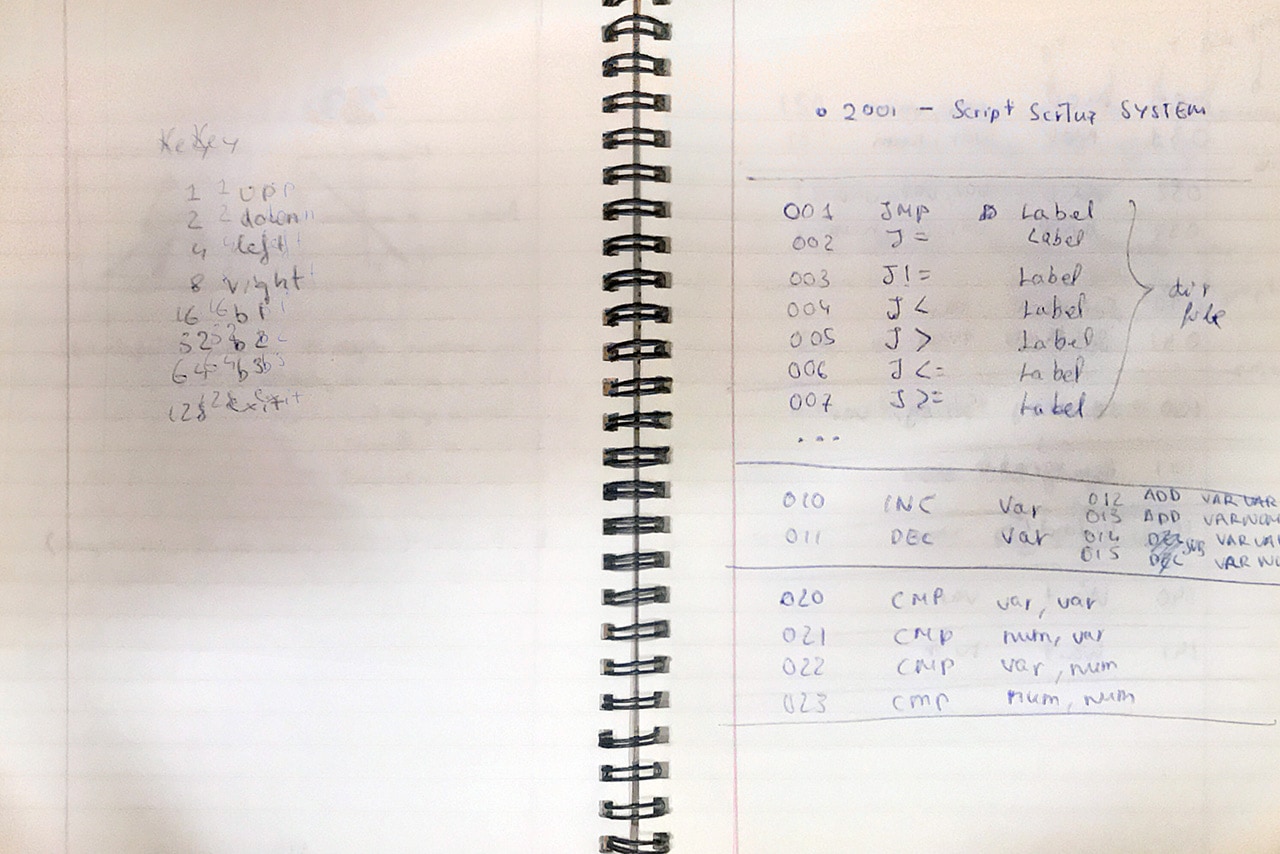 Key
1 up
2 down
4 left
8 right
16 b1
32 b2
64 b3
128 exit
2001 - Script SYSTEM
001 JMP Label
002 J= Label
003 J!= Label
004 J< Label
005 J> Label
006 J<= Label
007 J>= Label
...
dir
010 INC Var 012 ADD VAR VAR
013 ADD VAR NUM
011 DEC Var 014 SUB VAR VAR
015 VAR NU
020 CMP var, var
021 CMP num, var
022 CMP var, num
023 cmp num, num